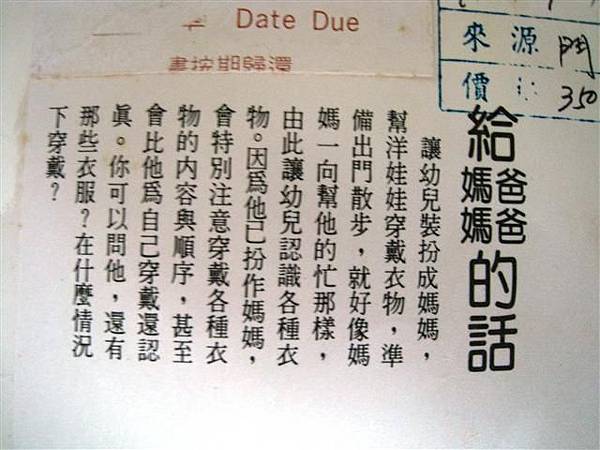 Date Due
書按期歸還
來源 門
價 350
給爸爸媽媽的話
讓幼兒裝扮成媽媽，
幫洋娃娃穿戴衣物，準
備出門散步，就好像媽
媽一向幫他的忙那樣，
由此讓幼兒認識各種衣
物。因為他已扮作媽媽，
會特別注意穿戴各種衣
物的內容與順序，甚至
會比他為自己穿戴還認
真。你可以問他，還有
那些衣服？在什麼情況
下穿戴？